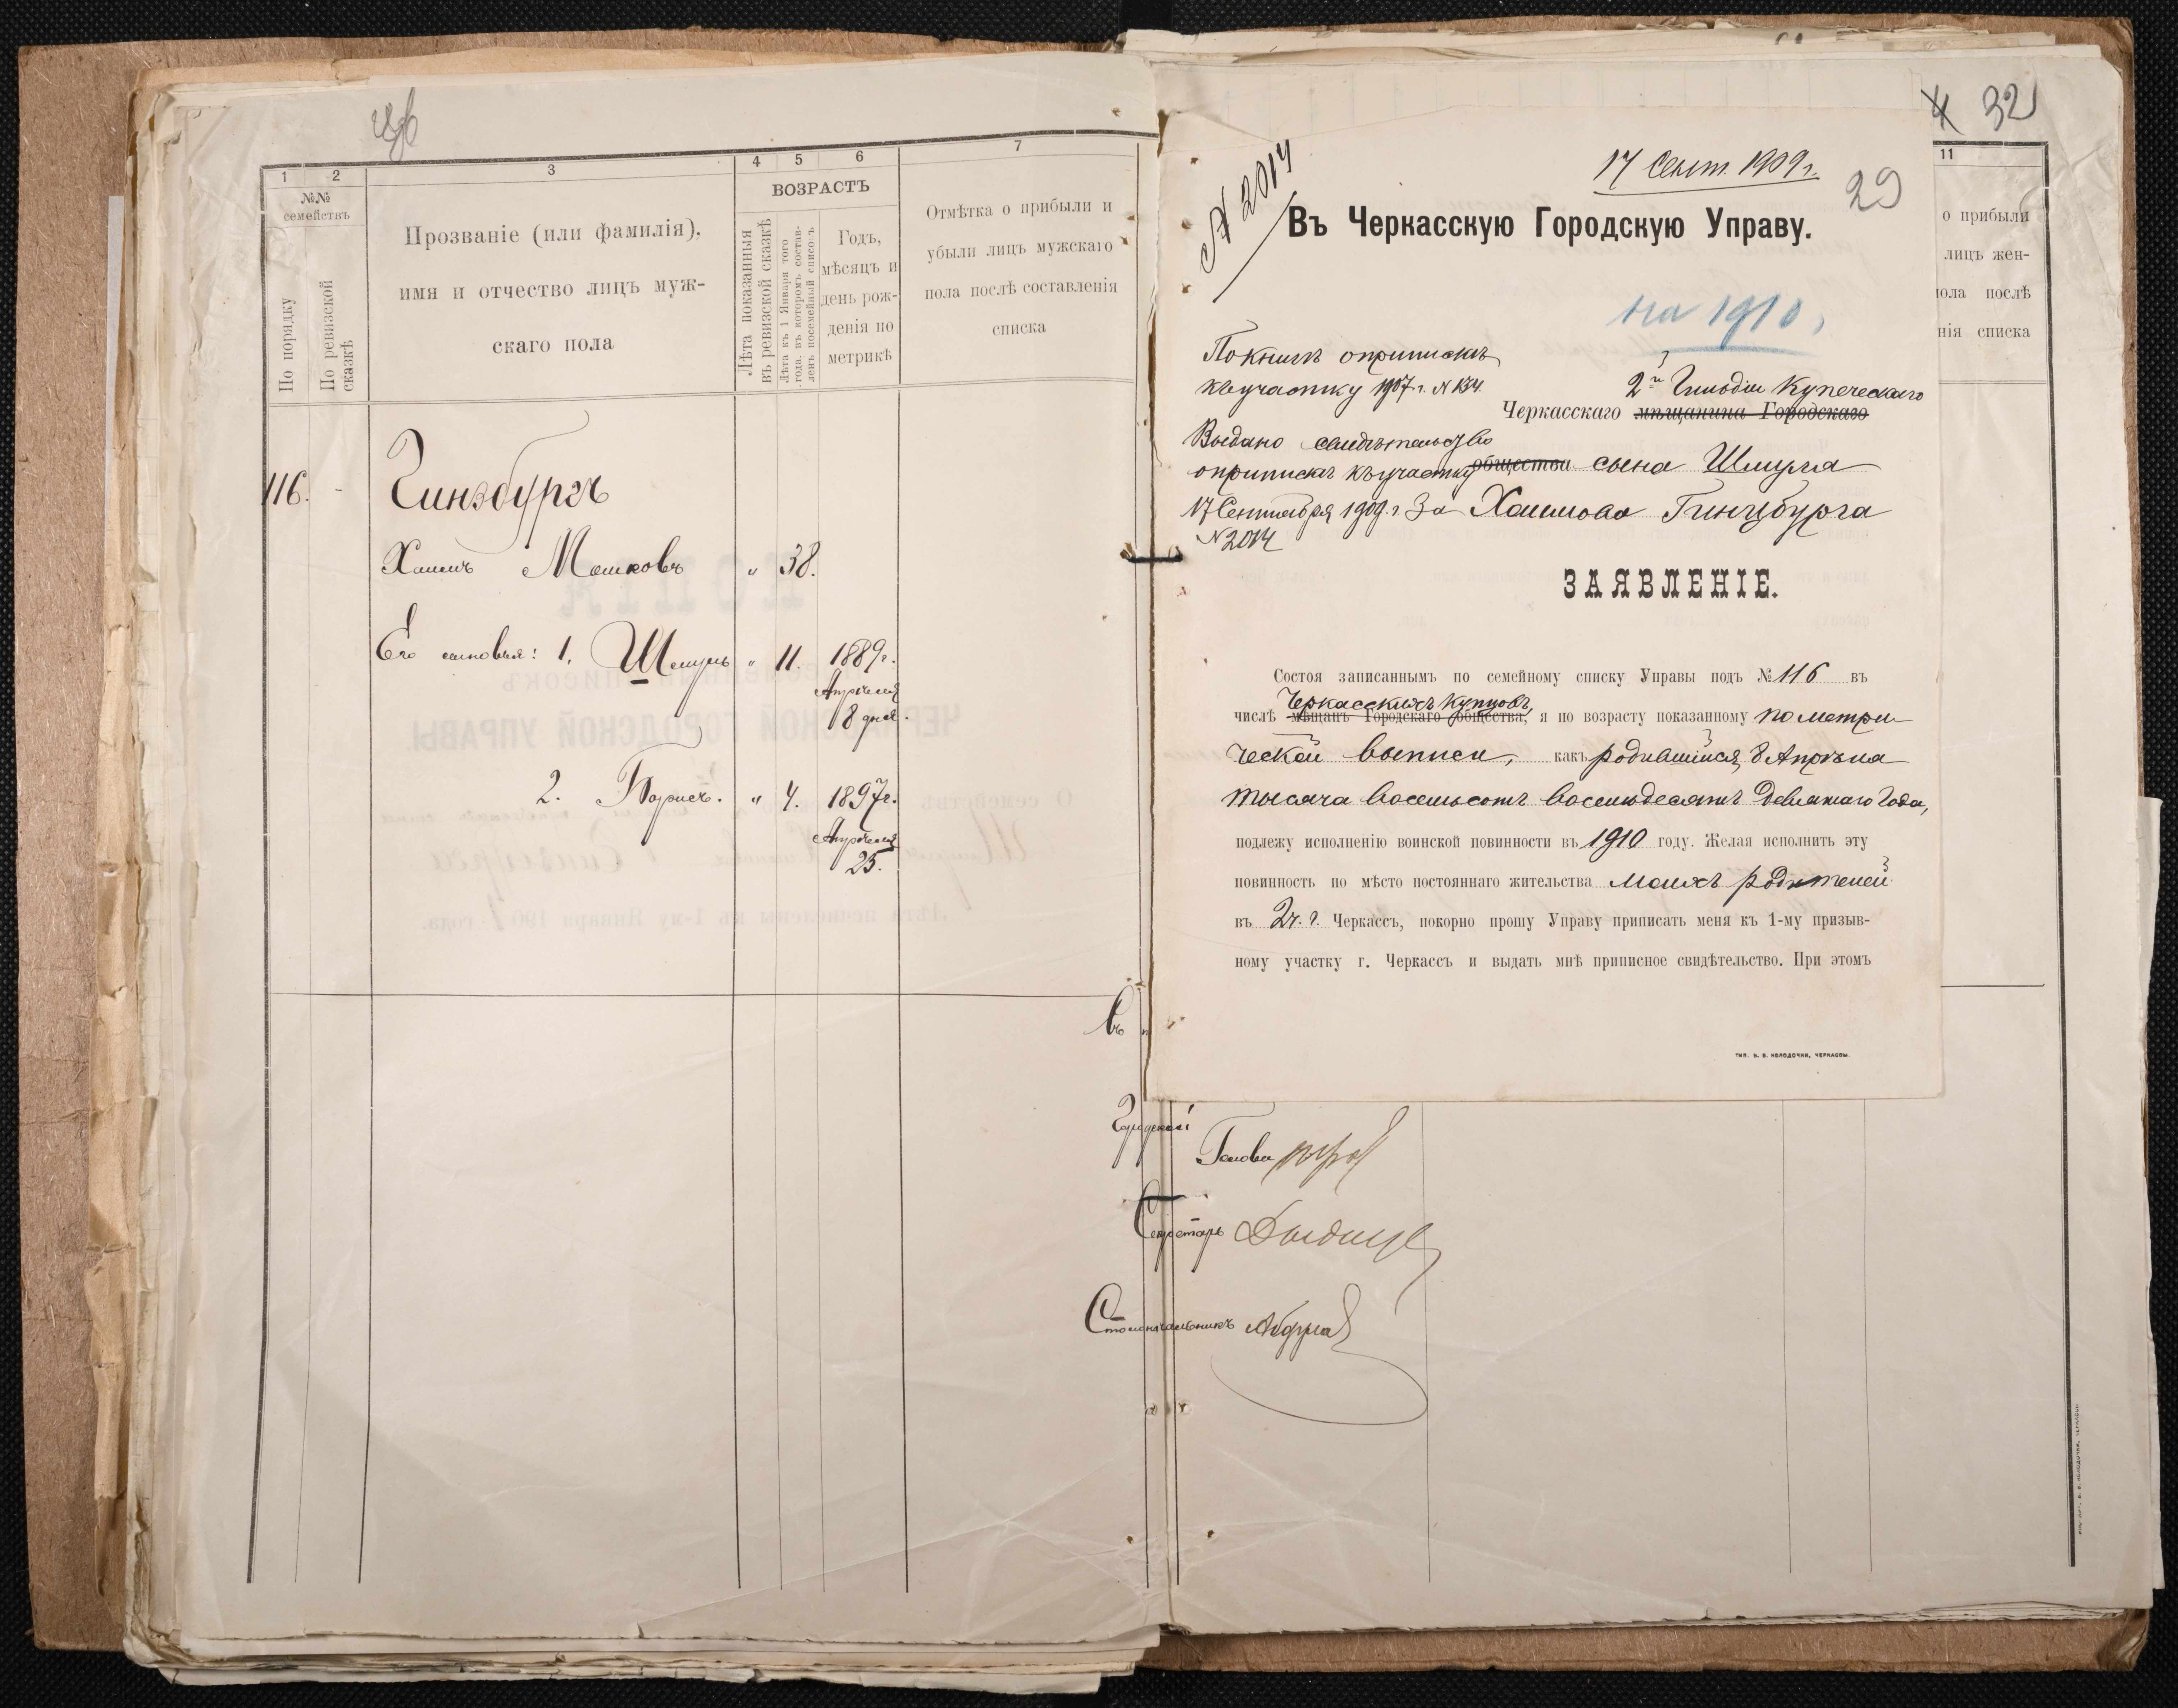 1
2
3
4
5
6
7
№№
семействъ
По порядку
По ревизской сказкѣ
Прозваніе (или фамилія),
имя и отчество лицъ муж-
скаго пола
ВОЗРАСТЪ
Лѣта показанныя
въ ревизской сказкѣ
Лѣта къ 1 Января того
года, въ которомъ состав-
ленъ посемейный списокъ
Годъ,
мѣсяцъ и
день рож-
денія по
метрикѣ
Отмѣтка о прибыли и
убыли лицъ мужскаго
пола послѣ составленія
списка
116. - Гинзбургъ
Хаимъ Мошковъ " 38.
Его сыновья: 1. Шмуль " 11. 1889г.
Апрѣля
8 дня.
2. Борисъ. " 4. 1897г.
Апрѣля
25.
Въ
Городской
Голова
Секретарь
Столоначальникъ
32
11
о прибыли
лицъ жен-
пола послѣ
нія списка
№ 2014
17 Сент. 1909 г.
29
Въ Черкасскую Городскую Управу.
на 1910,
По книгѣ о припискѣ
къ участку 1907 г. № 134
Выдано свидѣтельство
о припискѣ къ участку
17 Сентября 1909 г. За
№ 2014
2й Гильдіи Купеческаго
Черкасскаго мѣщанина Городскаго
общества сына Шмуля
Хаимова Гинцбурга
ЗАЯВЛЕНІЕ.
Состоя записаннымъ по семейному списку Управы подъ № 116 въ
Черкасскихъ Купцовъ,
числѣ мѣщанъ Городскаго общества, я по возрасту показанному по метри
ческой выписи, какъ родившійся 8 Апрѣля
тысяча восемьсотъ восемьдесятъ девятаго Года,
подлежу исполненію воинской повинности въ 1910 году. Желая исполнить эту
повинность по мѣсто постояннаго жительства моихъ родителей
въ 2ч. г. Черкассъ, покорно прошу Управу приписать меня къ 1-му призыв-
ному участку г. Черкассъ и выдать мнѣ приписное свидѣтельство. При этомъ
ТИП. В. В. КОЛОДОЧКИ, ЧЕРКАССЫ.